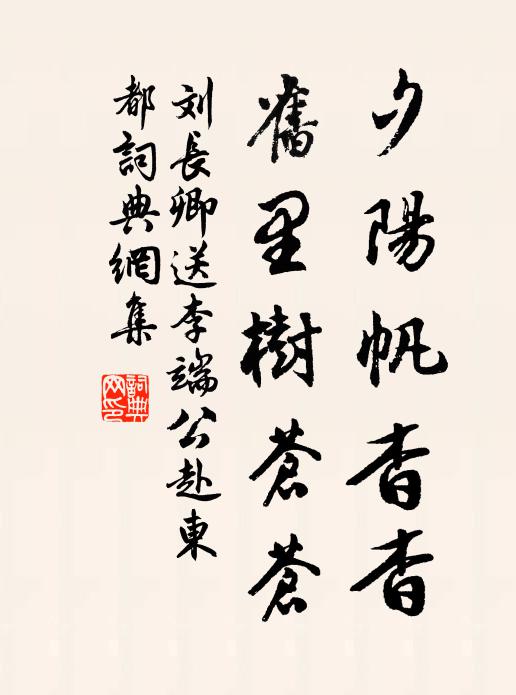 夕陽帆杳杳
舊里樹蒼蒼
刘長卿送李端公赴東
都詞典網集
詞典
网印